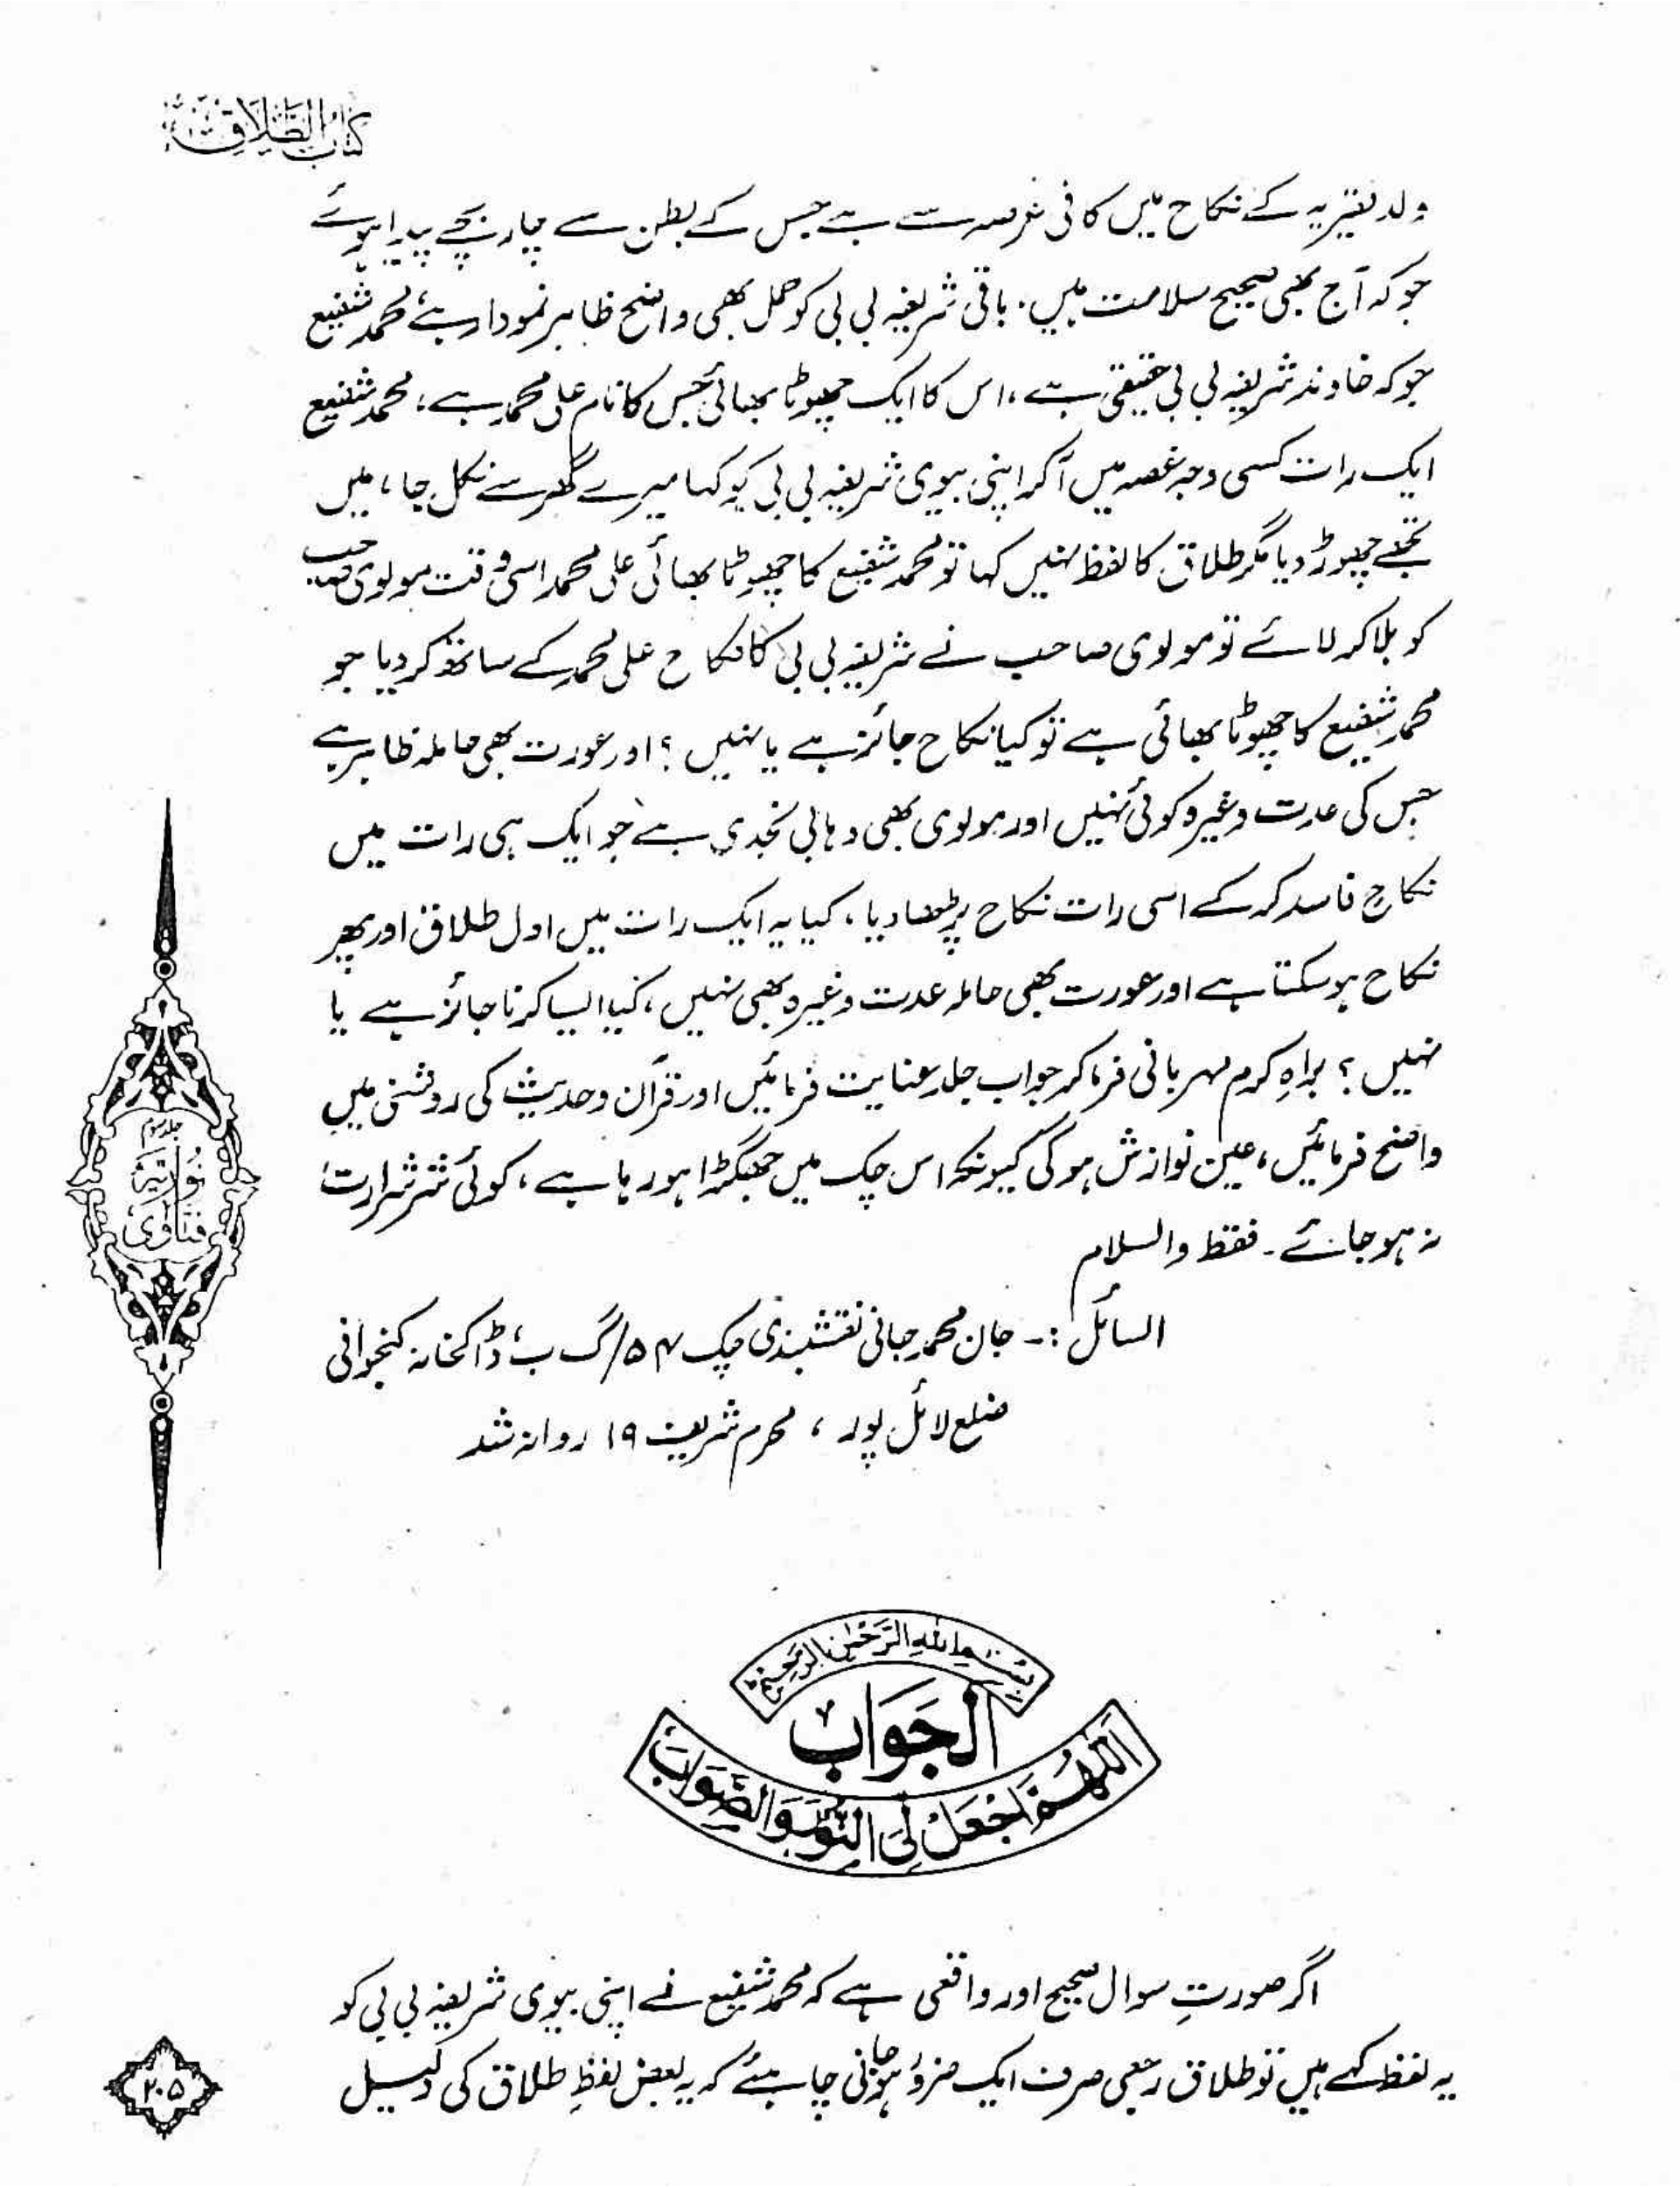 کتاب الطلاق
ولد نقیریہ کے نکاح میں کافی عرصہ سے ہے جس کے بطن سے چار بچے پیدا ہوئے
جو کہ آج بھی صحیح سلامت ہیں۔ باقی شریفہ بی بی کو حمل بھی واضح ظاہر نمودار ہے، محمد شفیع
جو کہ خاوند شریفہ بی بی حقیقی ہے، اس کا ایک چھوٹا بھائی جس کا نام علی محمد ہے، محمد شفیع
ایک رات کسی وجہ غصہ میں آکر اپنی بیوی شریفہ بی بی کو کہا میرے گھر سے نکل جا، میں
تجھے چھوڑ دیا مگر طلاق کا لفظ نہیں کہا تو محمد شفیع کا چھوٹا بھائی علی محمد اسی وقت مولوی صاحب
کو بلا کر لائے تو مولوی صاحب نے شریفہ بی بی کا نکاح علی محمد کے ساتھ کر دیا جو
محمد شفیع کا چھوٹا بھائی ہے تو کیا نکاح جائز ہے یا نہیں؟ اور عورت بھی حاملہ ظاہر ہے
جس کی عدت وغیرہ کوئی نہیں اور مولوی بھی وہابی نجدی ہے جو ایک ہی رات میں
نکاح فاسد کر کے اسی رات نکاح پڑھا دیا، کیا یہ ایک رات میں اول طلاق اور پھر
نکاح ہو سکتا ہے اور عورت بھی حاملہ عدت وغیرہ بھی نہیں، کیا ایسا کرنا جائز ہے یا
نہیں؟ براہِ کرم مہربانی فرما کر جواب جلد عنایت فرمائیں اور قرآن و حدیث کی روشنی میں
واضح فرمائیں، عین نوازش ہو گی کیونکہ اس چک میں جھگڑا ہو رہا ہے، کوئی شر شرارت
نہ ہو جائے۔ فقط والسلام
السائل :۔ جان محمد جانی نقشبندی چک ۵۴/گ ب، ڈاکخانہ کنجوانی
ضلع لائل پور، محرم شریف ۱۹ روانہ شد
جلد سوم
نوریہ
فتاویٰ
بِسْمِ اللهِ الرَّحْمٰنِ الرَّحِيْمِ
اَلْجَوَابُ
اَللّٰهُمَّ اجْعَلْ لِیَ النُّوْرَ وَالصَّوَابَ
اگر صورتِ سوال صحیح اور واقعی ہے کہ محمد شفیع نے اپنی بیوی شریفہ بی بی کو
یہ لفظ کہے ہیں تو طلاق رجعی صرف ایک ضرور ہو جانی چاہئے کہ یہ بعض لفظِ طلاق کی دلیل
۲۰۵